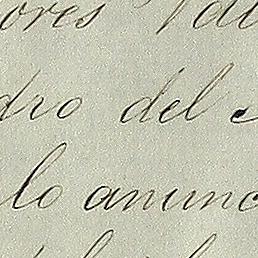 ores
dro del
lo anunc